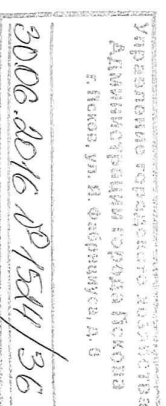 Управление городского хозяйства
Администрации города Пскова
г. Псков, ул. Я. Фабрициуса, д. 6
30.06.2016 № 1504/36